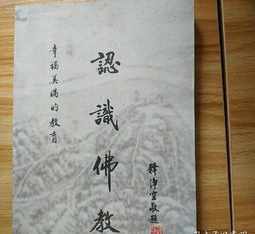 認識佛教
幸福美滿的教育
釋淨空敬題